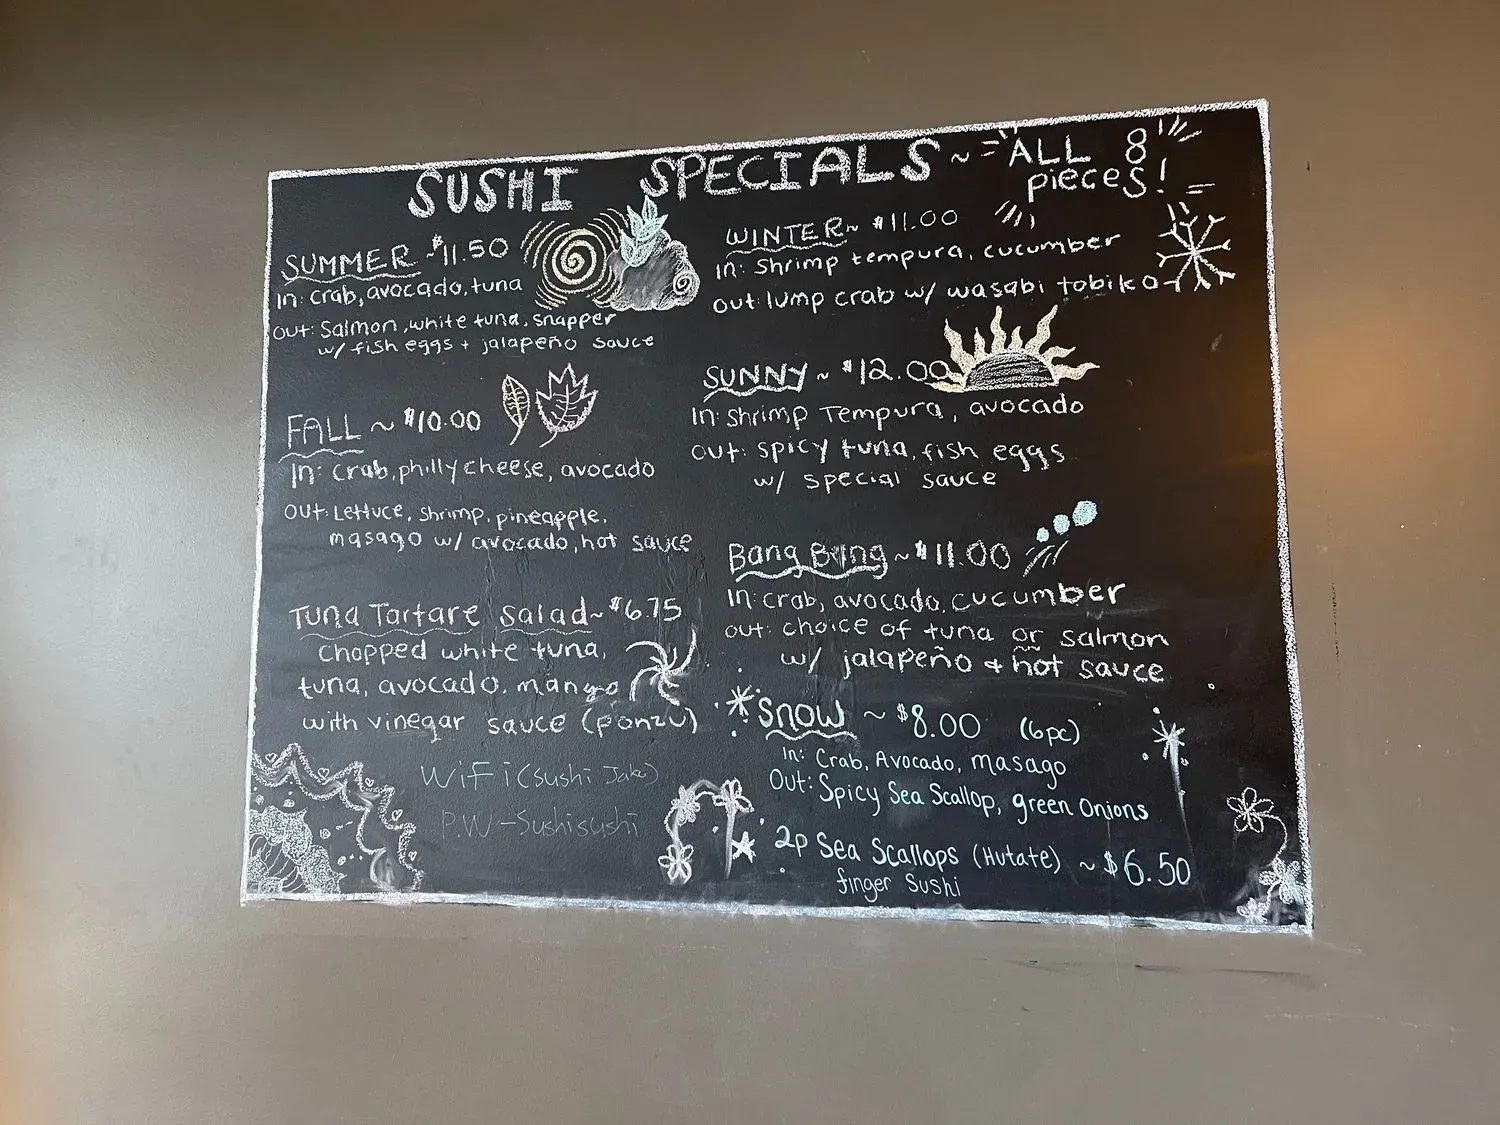 SUSHI SPECIALS ~ ALL 8 pieces!
SUMMER ~ $11.50
In: crab, avocado, tuna
Out: Salmon, white tuna, snapper
w/ fish eggs + jalapeño sauce
FALL ~ $10.00
In: crab, philly cheese, avocado
Out: Lettuce, shrimp, pineapple,
masago w/ avocado, hot sauce
Tuna Tartare Salad ~ $6.75
chopped white tuna,
tuna, avocado, mango
with vinegar sauce (ponzu)
WiFi (sushi Jake)
P.W - Sushisushi
WINTER ~ $11.00
In: Shrimp tempura, cucumber
Out: lump crab w/ wasabi tobiko
SUNNY ~ $12.00
In: Shrimp Tempura, avocado
Out: spicy tuna, fish eggs
w/ special sauce
Bang Bang ~ $11.00
In: crab, avocado, cucumber
Out: choice of tuna or salmon
w/ jalapeño + hot sauce
Snow ~ $8.00 (6pc)
In: Crab, Avocado, masago
Out: Spicy Sea Scallop, green Onions
2p Sea Scallops (Hutate) ~ $6.50
finger Sushi